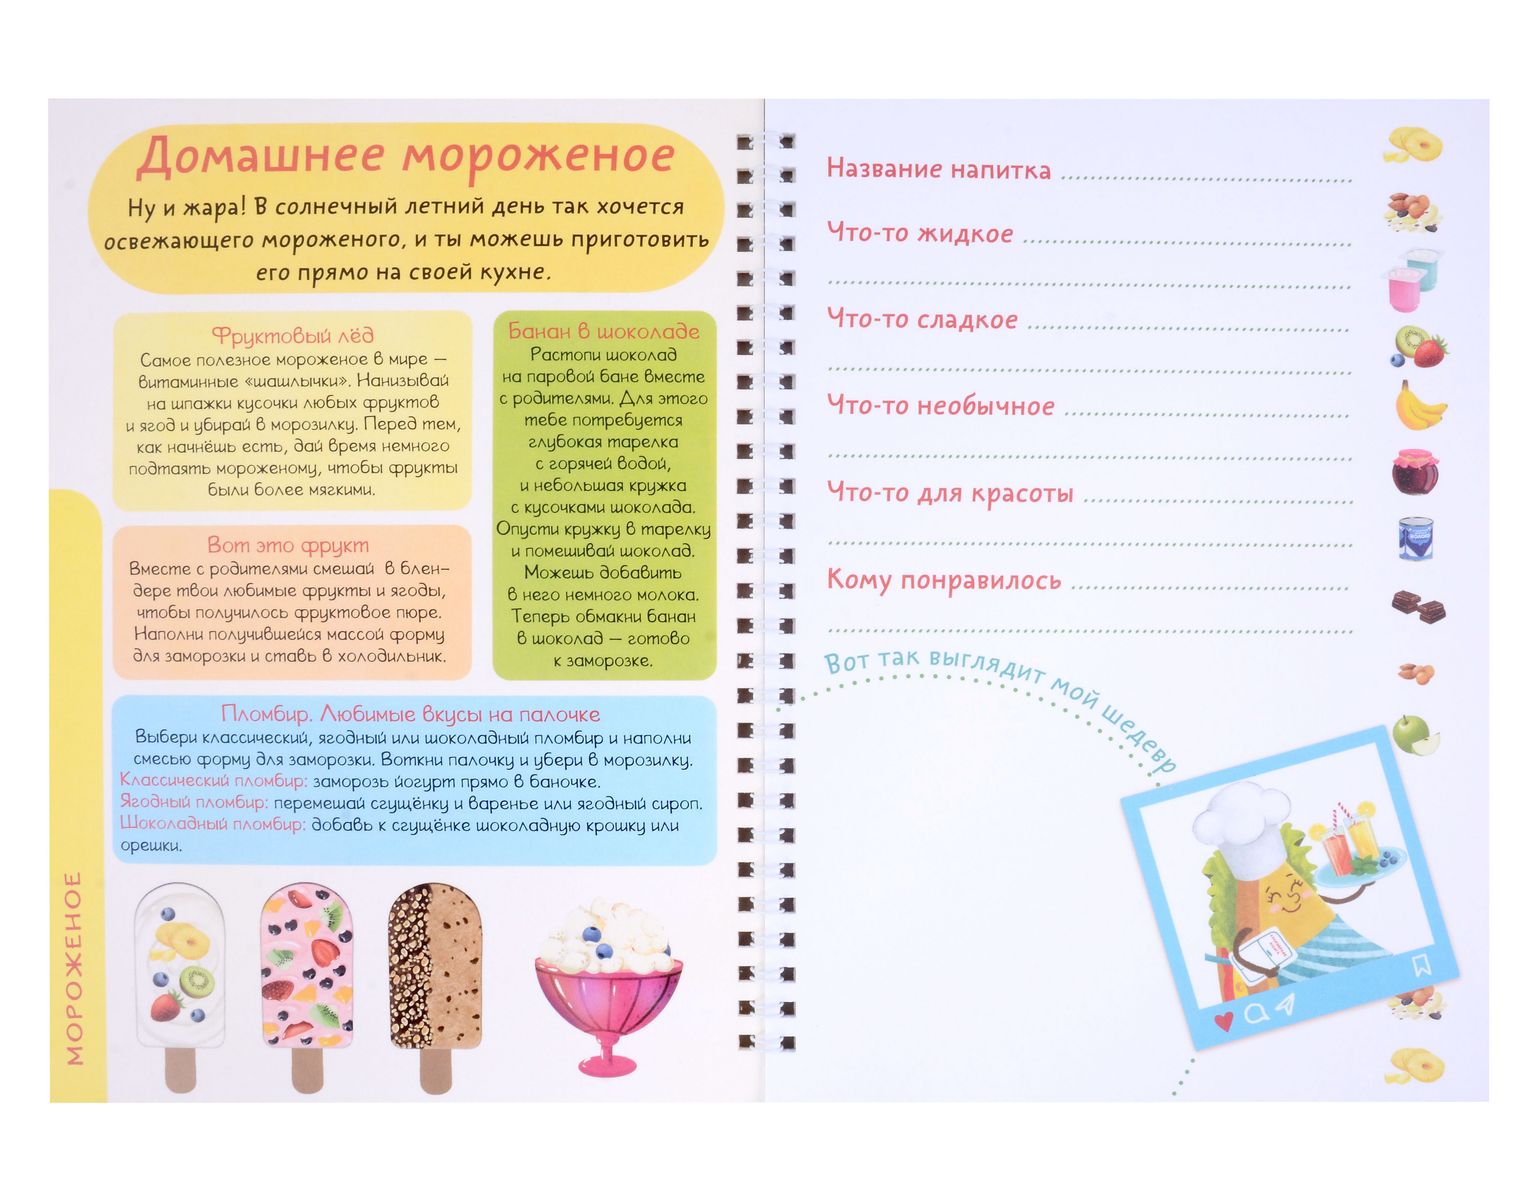 Домашнее мороженое
Ну и жара! В солнечный летний день так хочется
освежающего мороженого, и ты можешь приготовить
его прямо на своей кухне.
Фруктовый лёд
Самое полезное мороженое в мире —
витаминные «шашлычки». Нанизывай
на шпажки кусочки любых фруктов
и ягод и убирай в морозилку. Перед тем,
как начнёшь есть, дай время немного
подтаять мороженому, чтобы фрукты
были более мягкими.
Вот это фрукт
Вместе с родителями смешай в блен-
дере твои любимые фрукты и ягоды,
чтобы получилось фруктовое пюре.
Наполни получившейся массой форму
для заморозки и ставь в холодильник.
Банан в шоколаде
Растопи шоколад
на паровой бане вместе
с родителями. Для этого
тебе потребуется
глубокая тарелка
с горячей водой,
и небольшая кружка
с кусочками шоколада.
Опусти кружку в тарелку
и помешивай шоколад.
Можешь добавить
в него немного молока.
Теперь обмакни банан
в шоколад — готово
к заморозке.
Пломбир. Любимые вкусы на палочке
Выбери классический, ягодный или шоколадный пломбир и наполни
смесью форму для заморозки. Воткни палочку и убери в морозилку.
Классический пломбир: заморозь йогурт прямо в баночке.
Ягодный пломбир: перемешай сгущёнку и варенье или ягодный сироп.
Шоколадный пломбир: добавь к сгущёнке шоколадную крошку или
орешки.
МОРОЖЕНОЕ
Название напитка
Что-то жидкое
Что-то сладкое
Что-то необычное
Что-то для красоты
Кому понравилось
Вот так выглядит мой шедевр